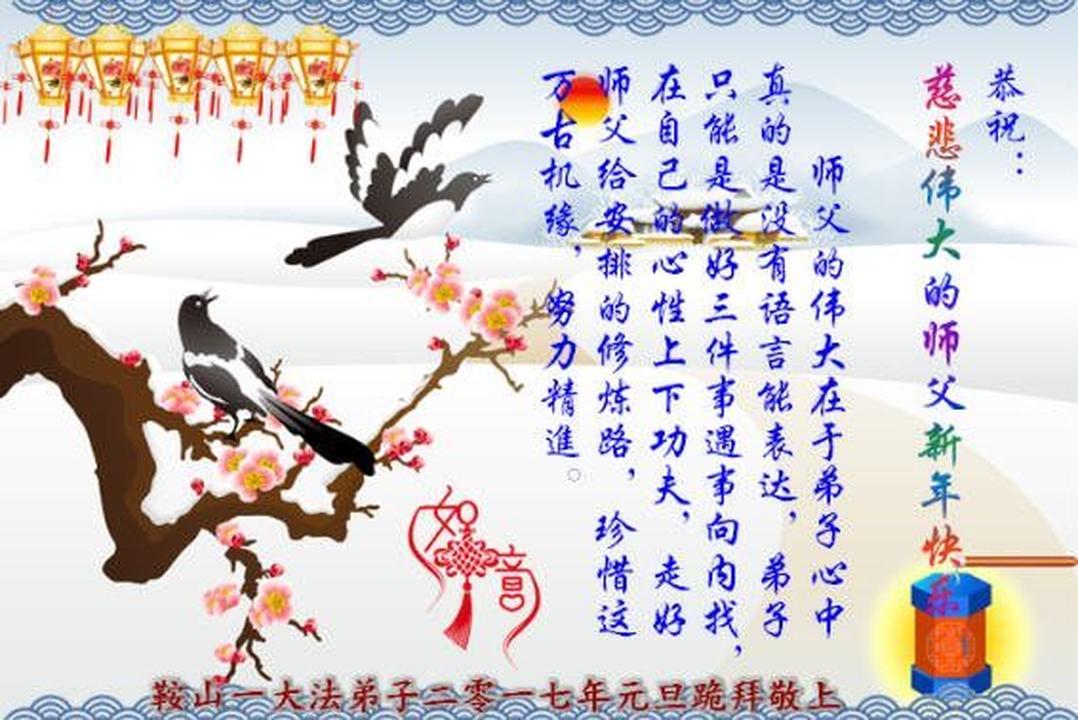 恭祝：
慈悲伟大的师父新年快乐
师父的伟大在于弟子心中
真的是没有语言能表达，弟子
只能是做好三件事遇事向内找，
在自己的心性上下功夫，走好
师父给安排的修炼路，珍惜这
万古机缘，努力精進。
如意
鞍山一大法弟子二零一七年元旦跪拜敬上